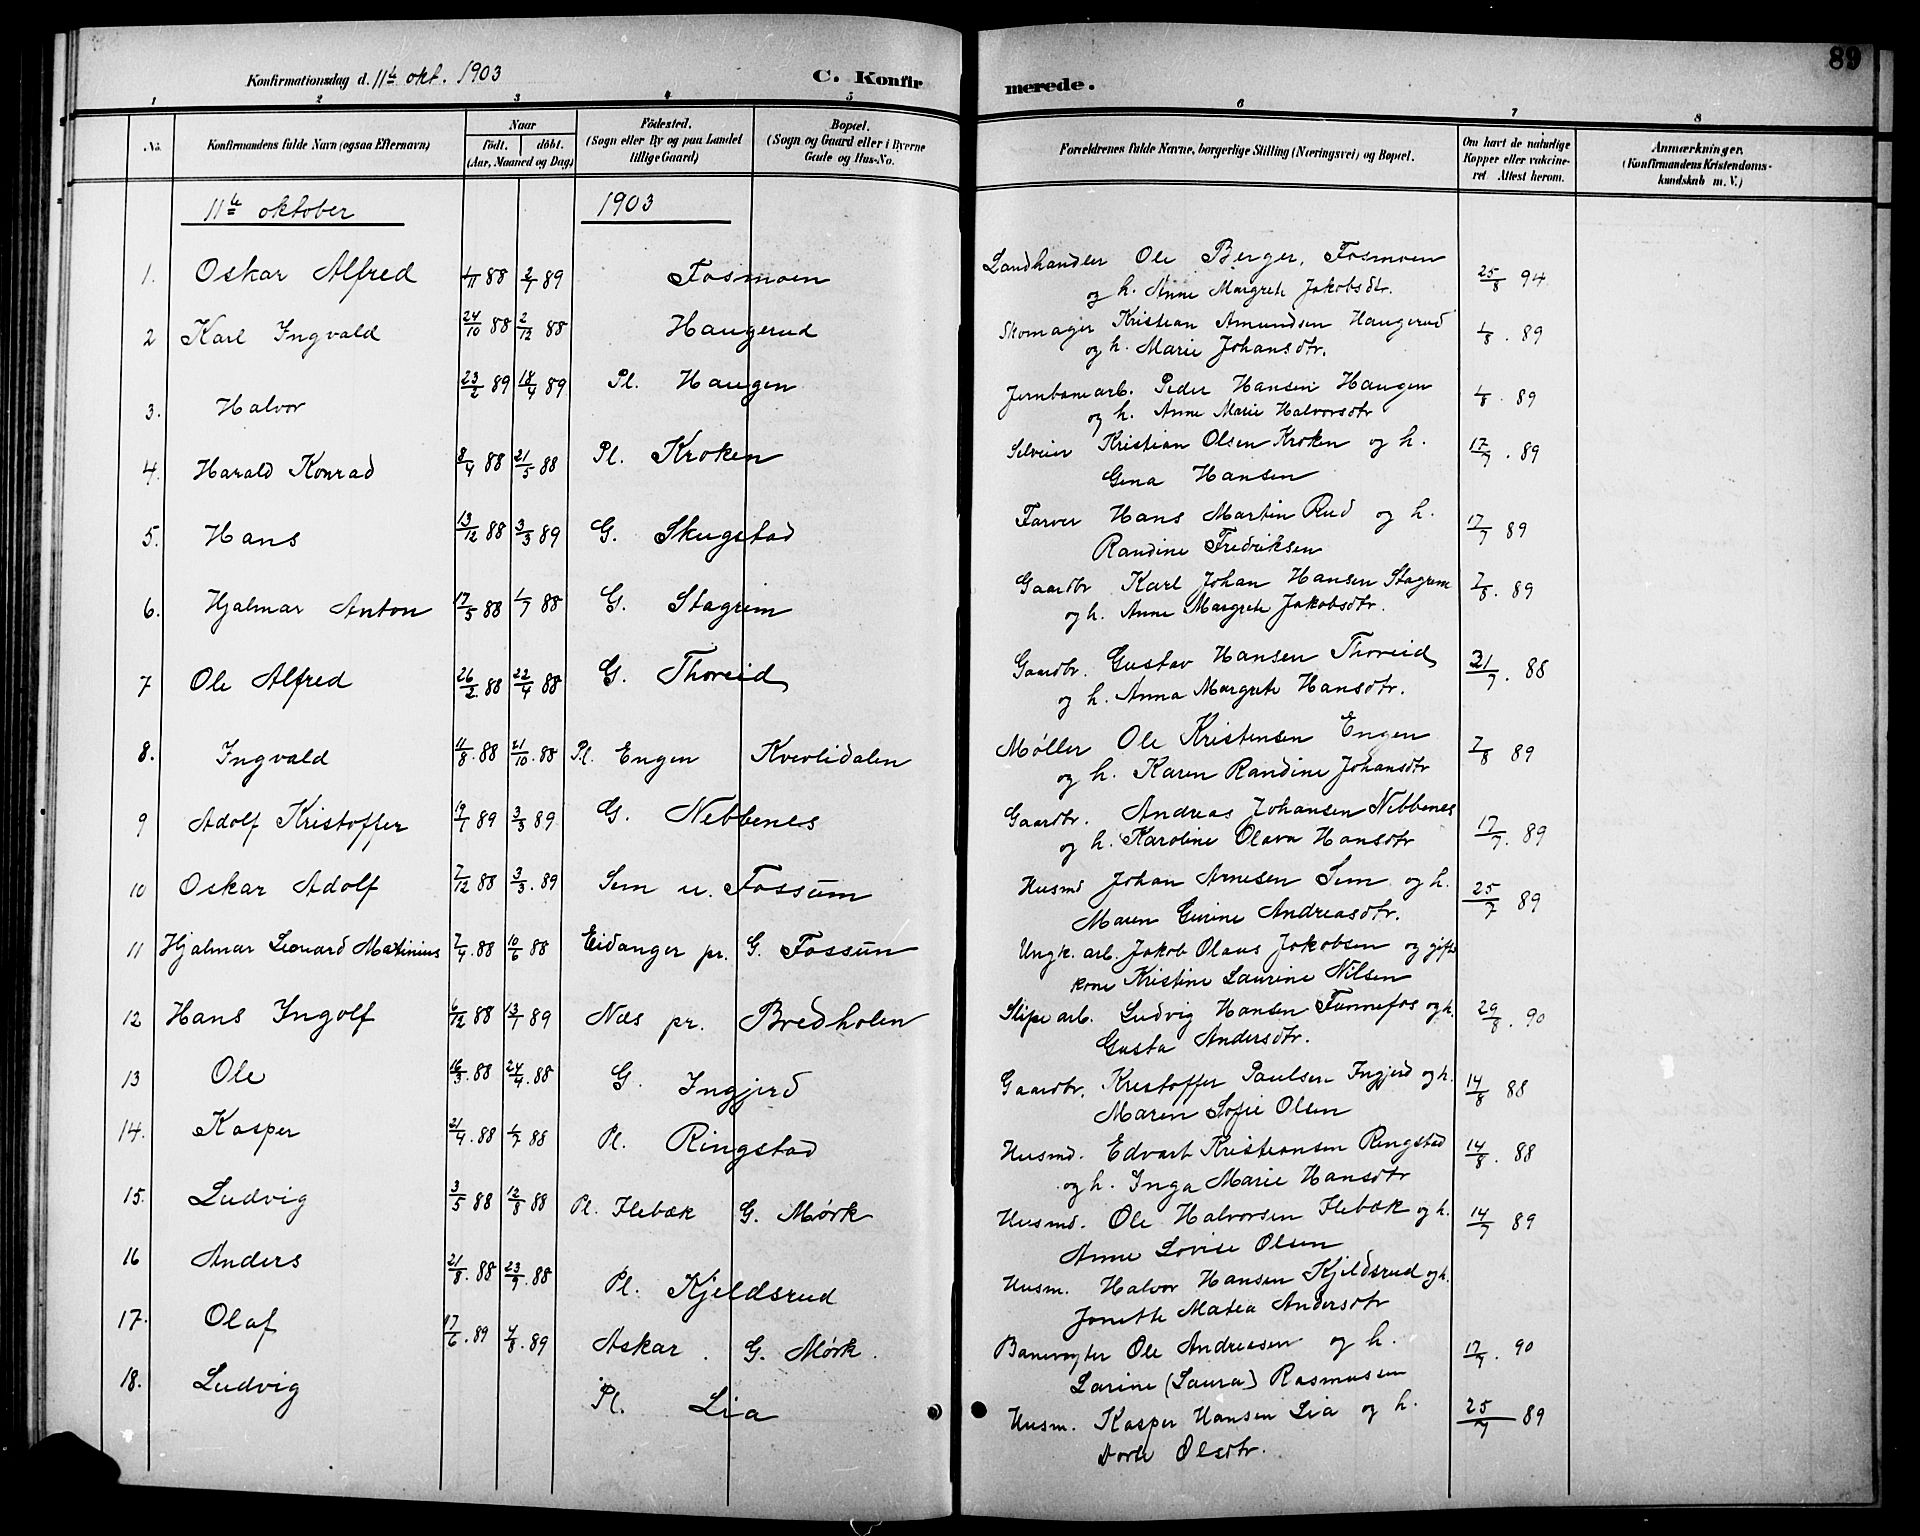 89
Konfirmationsdag d. 11te okt. 1903 C. Konfirmerede.
1 2 3 4 5 6 7 8
No. Konfirmandens fulde Navn (ogsaa Efternavn) Naar födt. döbt. (Aar, Maaned og Dag) Födested. (Sogn eller By og paa Landet tillige Gaard) Bopæl. (Sogn og Gaard eller i Byerne Gade og Hus-No. Forældrenes fulde Navne, borgerlige Stilling (Næringsvei) og Bopæl. Om havt de naturlige Kopper eller vakcineret Attest herom. Anmærkninger. (Konfirmandens Kristendomskundskab m. V.)
11te oktober 1903
1. Oskar Alfred 1/11 88 2/1 89 Fosmoen Landhandler Ole Berger, Fosmoen 25/8 94
og h. Anne Margrete Jakobsdtr.
2 Karl Ingvald 24/10 88 2/12 88 Haugerud Skomager Kristian Amundsen Haugerud 1/8. 89
og h. Marie Johansdtr.
3. Halvor 23/2 89 18/4 89 Pl. Haugen Jernbanearb. Peder Hansen Haugen 1/8. 89
og h. Anne Marie Halvorsdtr
4. Harald Konrad 8/4 88 21/5 88 Pl. Kroken Selveier Kristian Olsen Kroken og h. 17/7. 89
Gina Hansen
5. Hans 13/12 88 3/3 89 G. Skugstad Farver Hans Martin Rud og h. 17/7 89
Randine Fredriksen
6. Hjalmar Anton 17/5 88 1/7 88 G. Stagrim Gaardbr Karl Johan Hansen Stagrim 7/8. 89
og h. Anne Margrete Jakobsdtr.
7 Ole Alfred 26/2. 88 22/4 88 G. Thoreid Gaardbr. Gustav Hansen Thoreid 21/7. 88
og h. Anna Margrete Hansdtr.
8. Ingvald 11/8. 88 21/10. 88 Pl. Engen Kverlidalen Møller Ole Kristensen Engen 7/8 89
og h. Karen Randine Johansdtr
9 Adolf Kristoffer 19/1 89 3/3 89. G. Nebbenes Gaardbr. Andreas Johansen Nebbenes 17/7. 89
og h. Karoline Olava Hansdtr
10 Oskar Adolf 7/12 88 3/3. 89 Sem u. Fossum Husmd Johan Arnesen Sem og h. 25/7 89
Maren Gurine Andreasdtr.
11 Hjalmar Leonard Matinius 7/4. 88 10/6 88 Eidanger pr. G. Fossum Ungk. arb. Jakob Olaus Jakobsen og gift
kone Kristine Laurine Nilsen
12 Hans Ingolf 6/12 88 13/1 89 Næs pr. Bredholen Slipearb. Ludvig Hansen Funnefos og h. 29/8. 90
Gusta Andersdtr.
13 Ole 16/3. 88 24/4. 88 G. Ingjerd Gaardbr. Kristoffer Paulsen Ingjerd og h. 14/8 88
Maren Sofie Olsen
14. Kasper 21/4. 88 1/7 88 Pl. Ringstad Husmd. Edvart Kristiansen Ringstad 14/8. 88
og h. Inga Marie Hansdtr
15. Ludvig 3/5 88 12/8 88 Pl. Flebæk G. Mørk Husmd. Ole Halvorsen Flebæk og h. 14/7 89
Anne Lovise Olsen
16 Anders 21/8. 88 23/9. 88 Pl. Kjeldsrud Husm. Halvor Hansen Kjeldsrud og h.
Jonette Matea Andersdtr
17. Olaf 17/6. 89 4/8. 89 Askar. G. Mørk. Banevogter Ole Andreasen og h. 17/7. 90
Larine (Laura) Rasmussen
18. Ludvig Pl. Lia Husm. Kasper Hansen Lia og h. 25/7 89
Dorte Olsdtr.